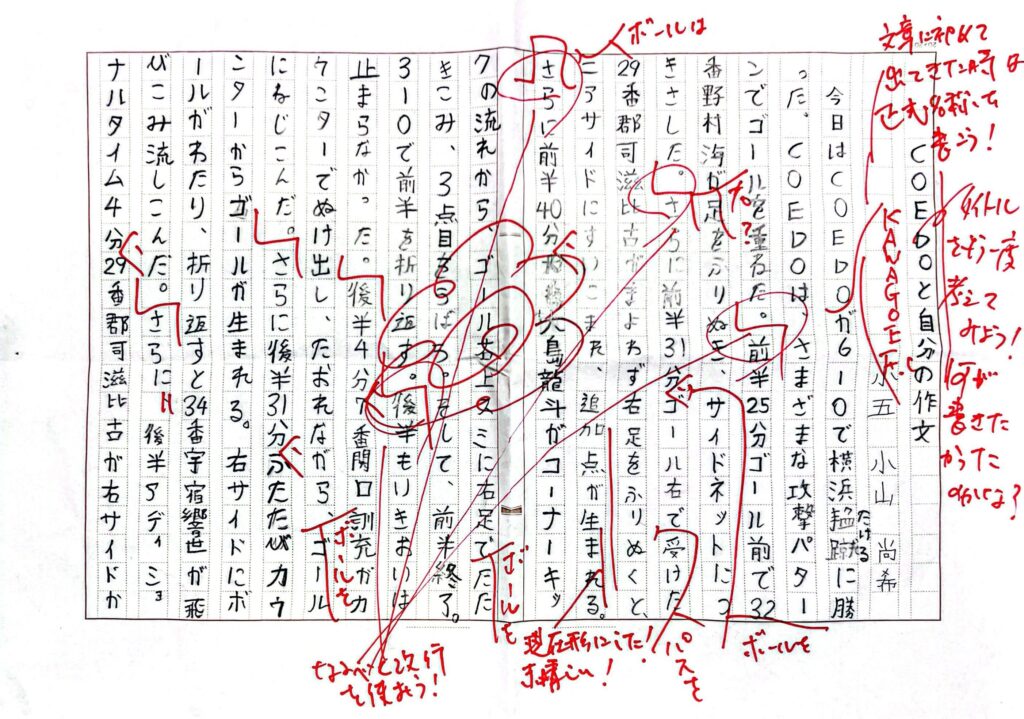 COEDOと自分の作文
小五 小山 尚希
今日はCOEDOが6-0で横浜猛蹴に勝
った。COEDOは、さまざまな攻撃パター
ンでゴールを重ねた。前半25分ゴール前で32
番野村海が足をふりぬき、サイドネットにつ
きさした。さらに前半31分ゴール右で受けた
29番郡司滋比古がまよわず右足をふりぬくと、
ニアサイドにすいこまれ、追加点が生まれる。
さらに前半40分大島龍斗がコーナーキッ
クの流れから、ゴール左上スミに右足でたた
きこみ、3点目をうばう。そして、前半終了。
3-0で前半を折り返す。後半もいきおいは
止まらなかった。後半4分7番関口訓充がカ
ウンターでぬけ出し、たおれながら、ゴール
にねじこんだ。さらに後半31分ふたたびカウ
ンターからゴールが生まれる。右サイドにボ
ールがわたり、折り返すと34番宇宿響世が飛
びこみ流しこんだ。さらに後半アディショ
ナルタイム4分29番郡司滋比古が右サイドか
文章に初めて
出てきた時は
正式名称を
書こう!
KANAGOE F.C
タイトル
をもう一度
考えて
みよう!
何が
書きた
かった
のかな?
ボールは
だて
ボールを
パスを
現在形にした!
素晴しい!
ボールを
ボールを
なるべく改行
を使おう!